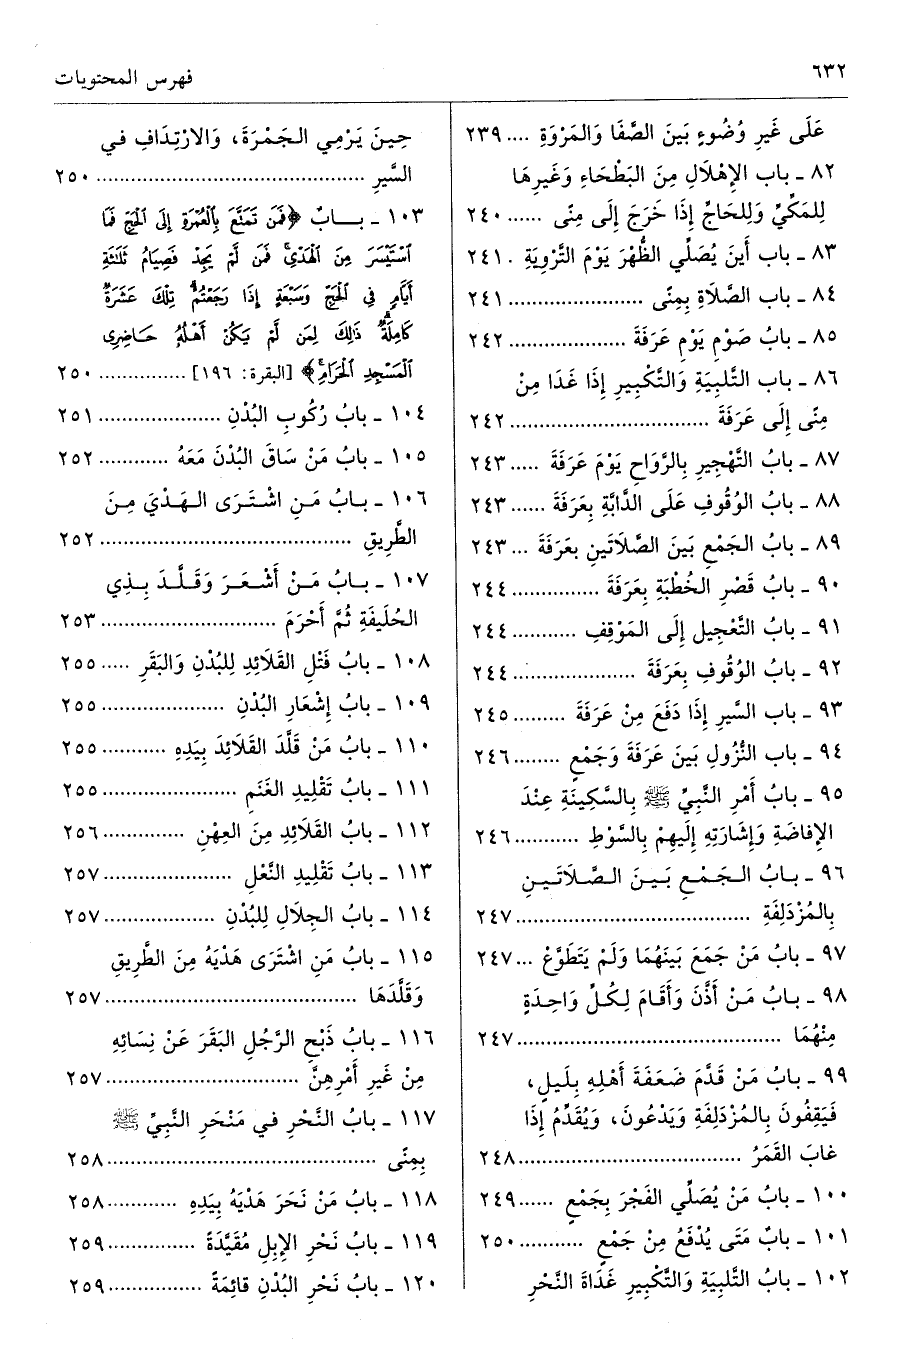 ٦٣٢
فهرس المحتويات
عَلَى غَيرِ وُضُوءٍ بَينَ الصَّفَا وَالمَرْوَةِ .... ٢٣٩
٨٢ ـ باب الإِهْلَالِ مِنَ البَطْحَاءِ وَغَيرِهَا
لِلمَكِّيِّ وَلِلحَاجِّ إِذَا خَرَجَ إِلَى مِنًى ...... ٢٤٠
٨٣ ـ باب أَينَ يُصَلِّي الظُّهْرَ يَوْمَ التَّرْوِيَةِ . ٢٤١
٨٤ ـ باب الصَّلَاةِ بِمِنًى ...................... ٢٤١
٨٥ ـ بابُ صَوْمِ يَوْمِ عَرَفَةَ .................... ٢٤٢
٨٦ ـ باب التَّلبِيَةِ وَالتَّكْبِيرِ إِذَا غَدَا مِنْ
مِنًى إِلَى عَرَفَةَ ................................ ٢٤٢
٨٧ ـ بابُ التَّهْجِيرِ بِالرَّوَاحِ يَوْمَ عَرَفَةَ ..... ٢٤٣
٨٨ ـ بابُ الوُقُوفِ عَلَى الدَّابَّةِ بِعَرَفَةَ ...... ٢٤٣
٨٩ ـ بابُ الجَمْعِ بَينَ الصَّلَاتَينِ بِعَرَفَةَ ... ٢٤٣
٩٠ ـ بابُ قَصْرِ الخُطْبَةِ بِعَرَفَةَ ............... ٢٤٤
٩١ ـ بابُ التَّعْجِيلِ إِلَى المَوْقِفِ ........... ٢٤٤
٩٢ ـ بابُ الوُقُوفِ بِعَرَفَةَ ..................... ٢٤٤
٩٣ ـ باب السَّيرِ إِذَا دَفَعَ مِنْ عَرَفَةَ ......... ٢٤٥
٩٤ ـ باب النُّزُولِ بَينَ عَرَفَةَ وَجَمْعٍ ........ ٢٤٦
٩٥ ـ بابُ أَمْرِ النَّبِيِّ ﷺ بِالسَّكِينَةِ عِنْدَ
الإِفاضَةِ وَإِشَارَتِهِ إِلَيهِمْ بِالسَّوْطِ ........... ٢٤٦
٩٦ ـ بابُ الجَمْعِ بَينَ الصَّلَاتَينِ
بِالمُزْدَلِفَةِ ...................................... ٢٤٧
٩٧ ـ بابُ مَنْ جَمَعَ بَينَهُمَا وَلَمْ يَتَطَوَّعْ ... ٢٤٧
٩٨ ـ بابُ مَنْ أَذَّنَ وَأَقَامَ لِكُلِّ وَاحِدَةٍ
مِنْهُمَا ........................................... ٢٤٧
٩٩ ـ بابُ مَنْ قَدَّمَ ضَعَفَةَ أَهْلِهِ بِلَيلٍ،
فَيَقِفُونَ بِالمُزْدَلِفَةِ وَيَدْعُونَ، وَيُقَدِّمُ إِذَا
غابَ القَمَرُ ..................................... ٢٤٨
١٠٠ ـ بابُ مَنْ يُصَلِّي الفَجْرَ بِجَمْعٍ ...... ٢٤٩
١٠١ ـ بابٌ مَتَى يُدْفَعُ مِنْ جَمْعٍ ........... ٢٥٠
١٠٢ ـ بابُ التَّلبِيَةِ وَالتَّكْبِيرِ غَدَاةَ النَّحْرِ
حِينَ يَرْمِي الجَمْرَةَ، وَالارْتِدَافِ في
السَّيرِ ............................................ ٢٥٠
١٠٣ ـ بابٌ ﴿فَمَن تَمَتَّعَ بِالْعُمْرَةِ إِلَى الْحَجِّ فَمَا
اسْتَيْسَرَ مِنَ الْهَدْيِ فَمَن لَّمْ يَجِدْ فَصِيَامُ ثَلَاثَةِ
أَيَّامٍ فِي الْحَجِّ وَسَبْعَةٍ إِذَا رَجَعْتُمْ تِلْكَ عَشَرَةٌ
كَامِلَةٌ ذَلِكَ لِمَن لَّمْ يَكُنْ أَهْلُهُ حَاضِرِي
الْمَسْجِدِ الْحَرَامِ﴾ [البقرة: ١٩٦] ............... ٢٥٠
١٠٤ ـ بابُ رُكُوبِ البُدْنِ .................... ٢٥١
١٠٥ ـ بابُ مَنْ سَاقَ البُدْنَ مَعَهُ ............ ٢٥٢
١٠٦ ـ بابُ مَنِ اشْتَرَى الهَدْيَ مِنَ
الطَّرِيقِ .......................................... ٢٥٢
١٠٧ ـ بابُ مَنْ أَشْعَرَ وَقَلَّدَ بِذِي
الحُلَيفَةِ ثُمَّ أَحْرَمَ ............................ ٢٥٣
١٠٨ ـ بابُ فَتْلِ القَلَائِدِ لِلبُدْنِ وَالبَقَرِ ..... ٢٥٥
١٠٩ ـ بابُ إِشْعَارِ البُدْنِ .................... ٢٥٥
١١٠ ـ بابُ مَنْ قَلَّدَ القَلَائِدَ بِيَدِهِ ........... ٢٥٥
١١١ ـ بابُ تَقْلِيدِ الغَنَمِ ...................... ٢٥٥
١١٢ ـ بابُ القَلَائِدِ مِنَ العِهْنِ .............. ٢٥٦
١١٣ ـ بابُ تَقْلِيدِ النَّعْلِ ...................... ٢٥٧
١١٤ ـ بابُ الجِلَالِ لِلبُدْنِ ................... ٢٥٧
١١٥ ـ بابُ مَنِ اشْتَرَى هَدْيَهُ مِنَ الطَّرِيقِ
وَقَلَّدَهَا ......................................... ٢٥٧
١١٦ ـ بابُ ذَبْحِ الرَّجُلِ البَقَرَ عَنْ نِسَائِهِ
مِنْ غَيرِ أَمْرِهِنَّ ............................... ٢٥٧
١١٧ ـ بابُ النَّحْرِ في مَنْحَرِ النَّبِيِّ ﷺ
بِمِنًى ............................................. ٢٥٨
١١٨ ـ بابُ مَنْ نَحَرَ هَدْيَهُ بِيَدِهِ ............ ٢٥٨
١١٩ ـ بابُ نَحْرِ الإِبِلِ مُقَيَّدَةً ............... ٢٥٩
١٢٠ ـ بابُ نَحْرِ البُدْنِ قائِمَةً ................ ٢٥٩